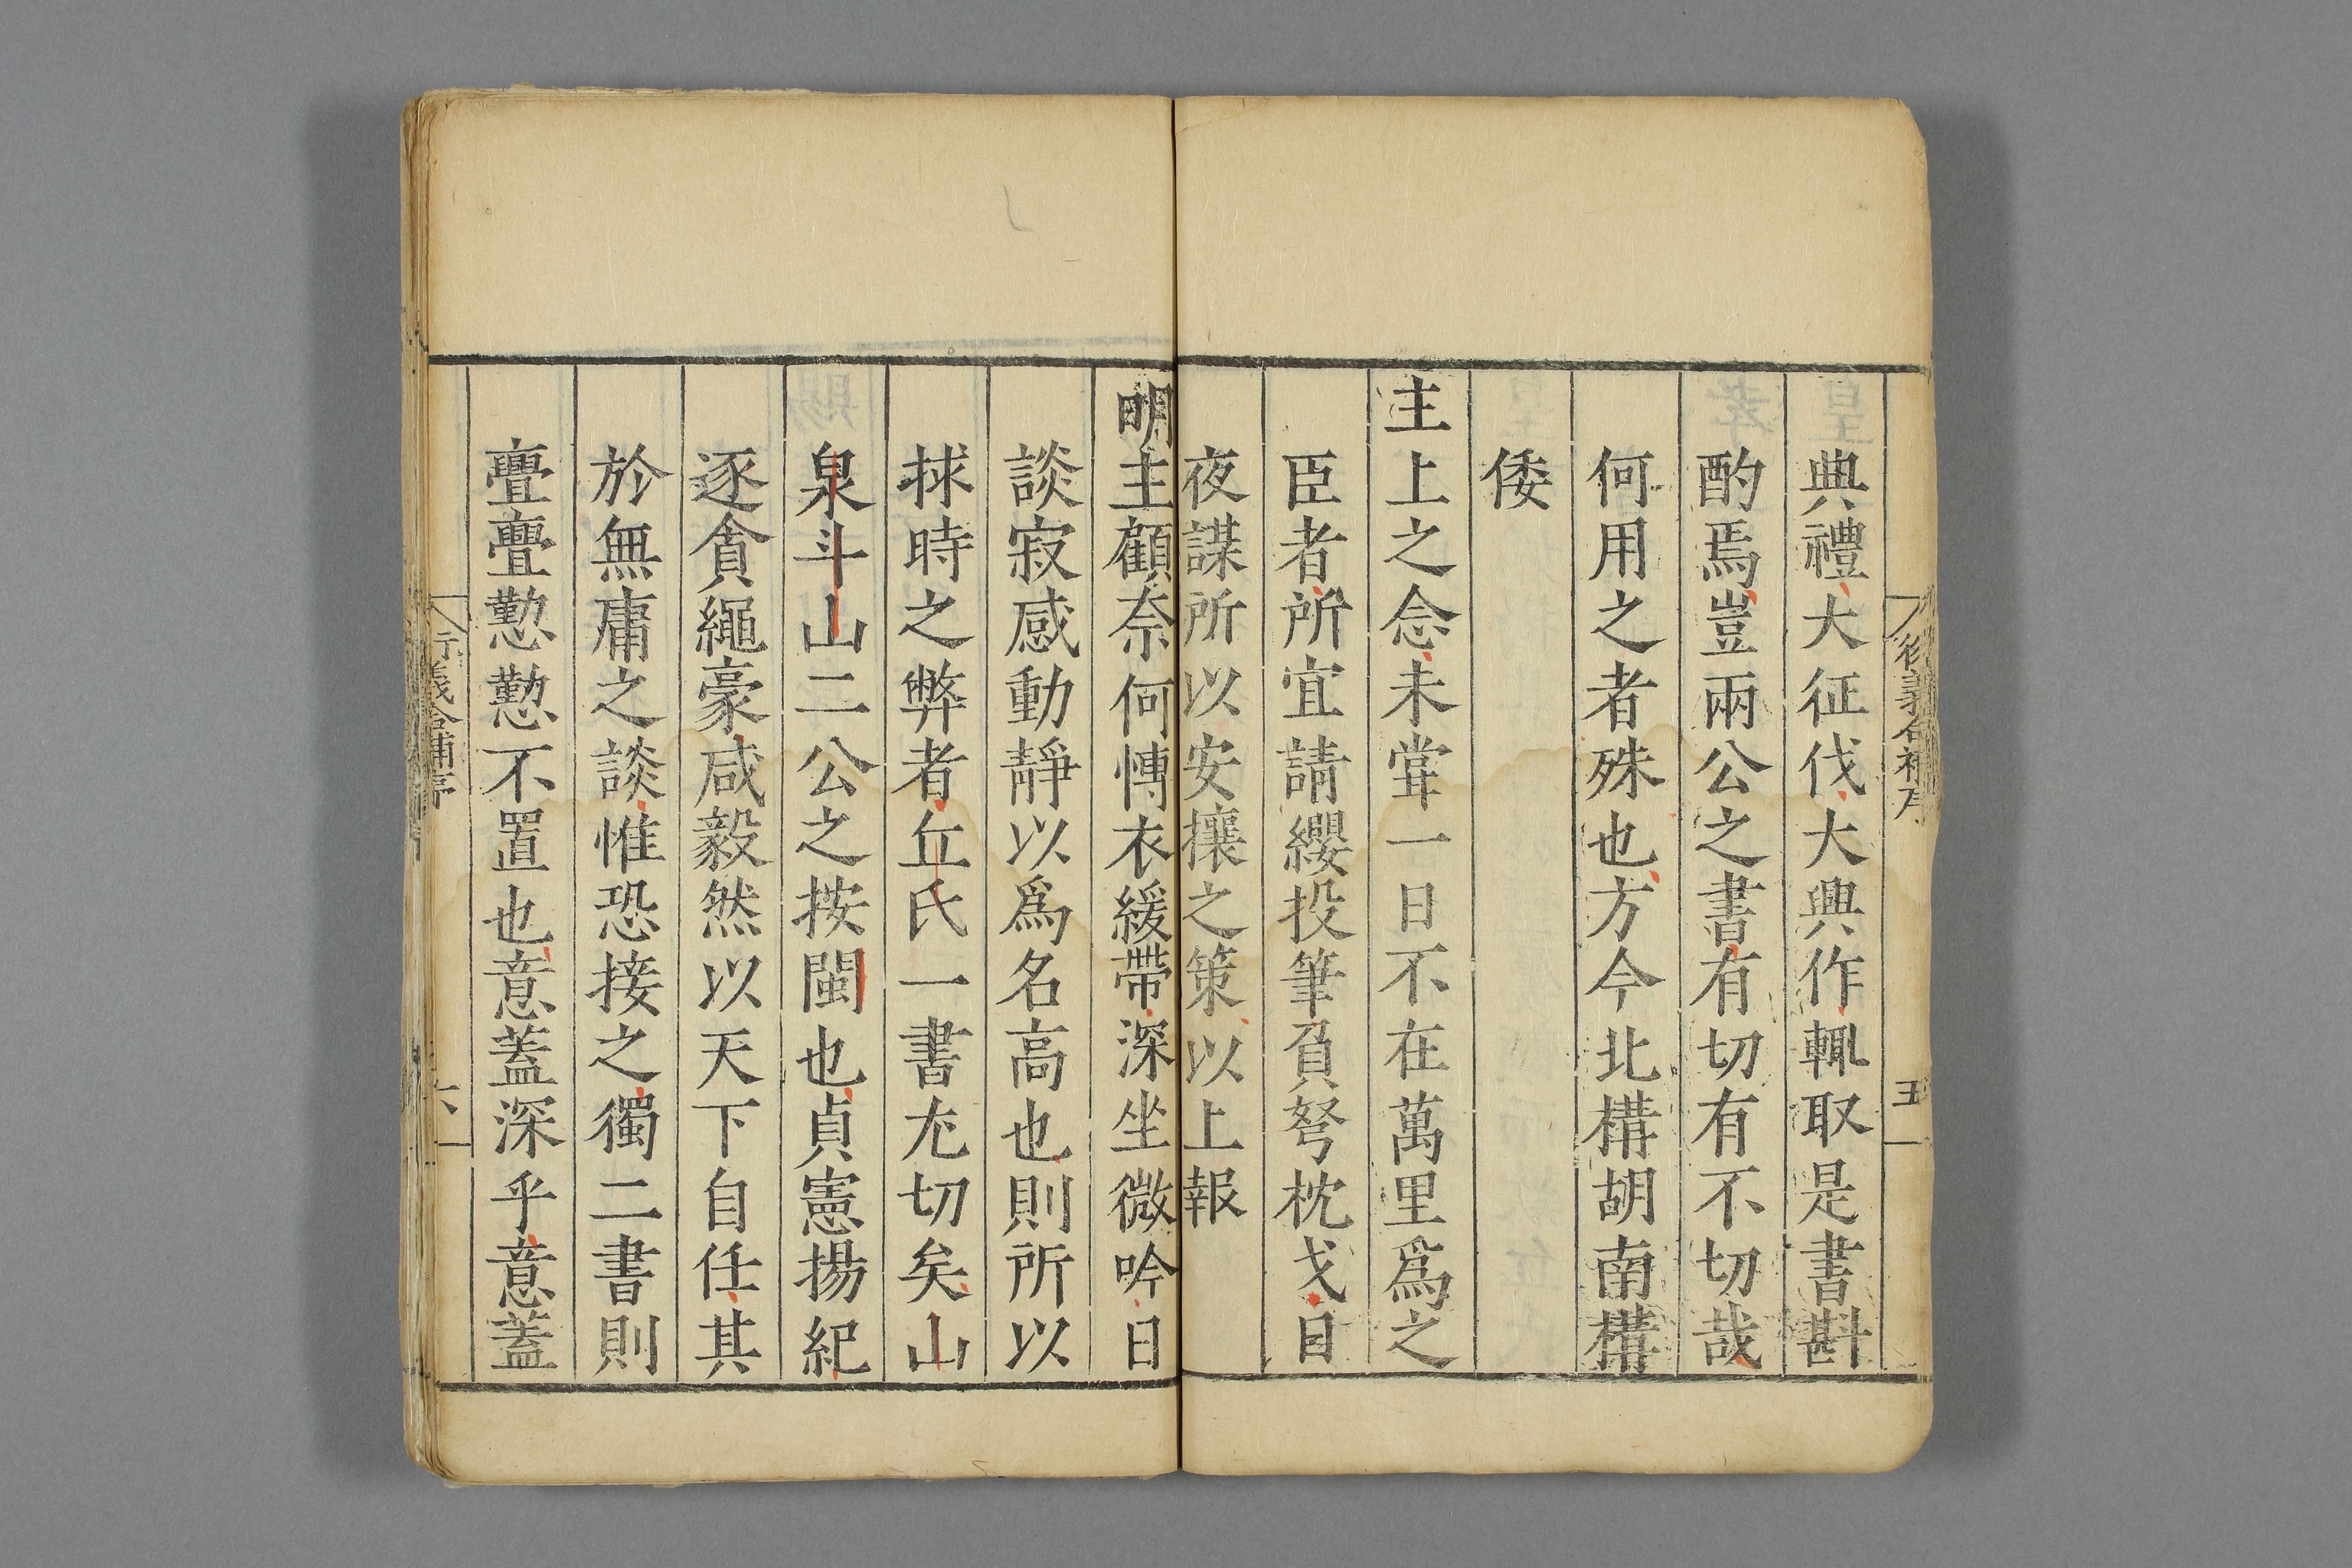 衍義合補序
五
典禮大征伐大興作輒取是書斟
酌焉豈兩公之書有切有不切哉
何用之者殊也方今北構胡南構
倭
主上之念未甞一日不在萬里爲之
臣者所宜請纓投筆負弩枕戈日
夜謀所以安攘之策以上報
明主顧奈何慱衣緩帶深坐微吟日
談寂感動靜以爲名高也則所以
捄時之弊者丘氏一書尤切矣山
泉斗山二公之按閩也貞憲揚紀
逐貪繩豪咸毅然以天下自任其
於無庸之談惟恐接之獨二書則
亹亹懃懃不置也意蓋深乎意蓋
衍義合補序
六